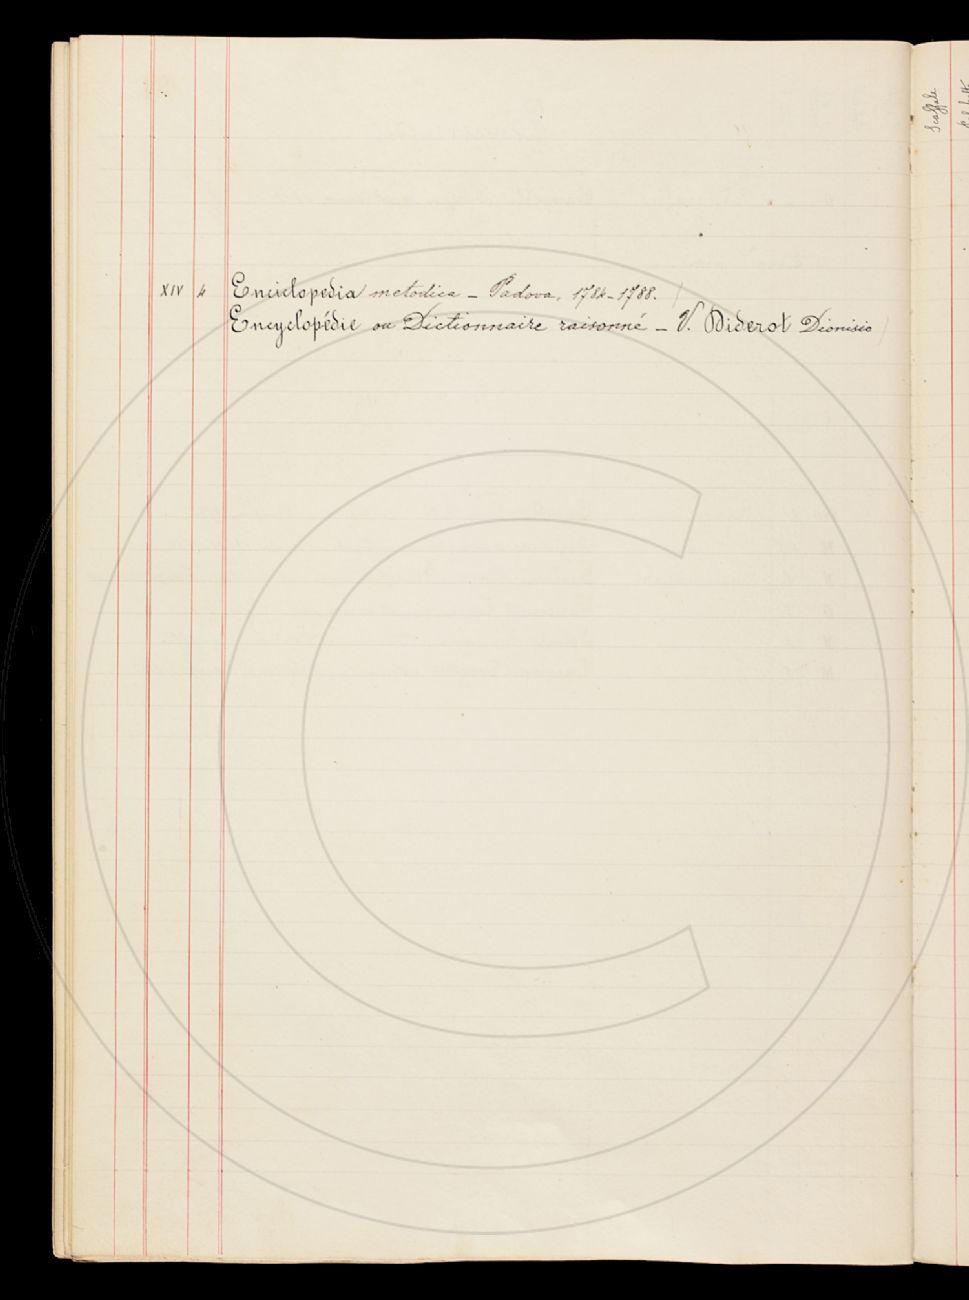 XIV 4 Enciclopedia metodica – Padova, 1784-1788.
Encyclopédie ou Dictionnaire raisonné – V. Diderot Dionisio
Scaffale